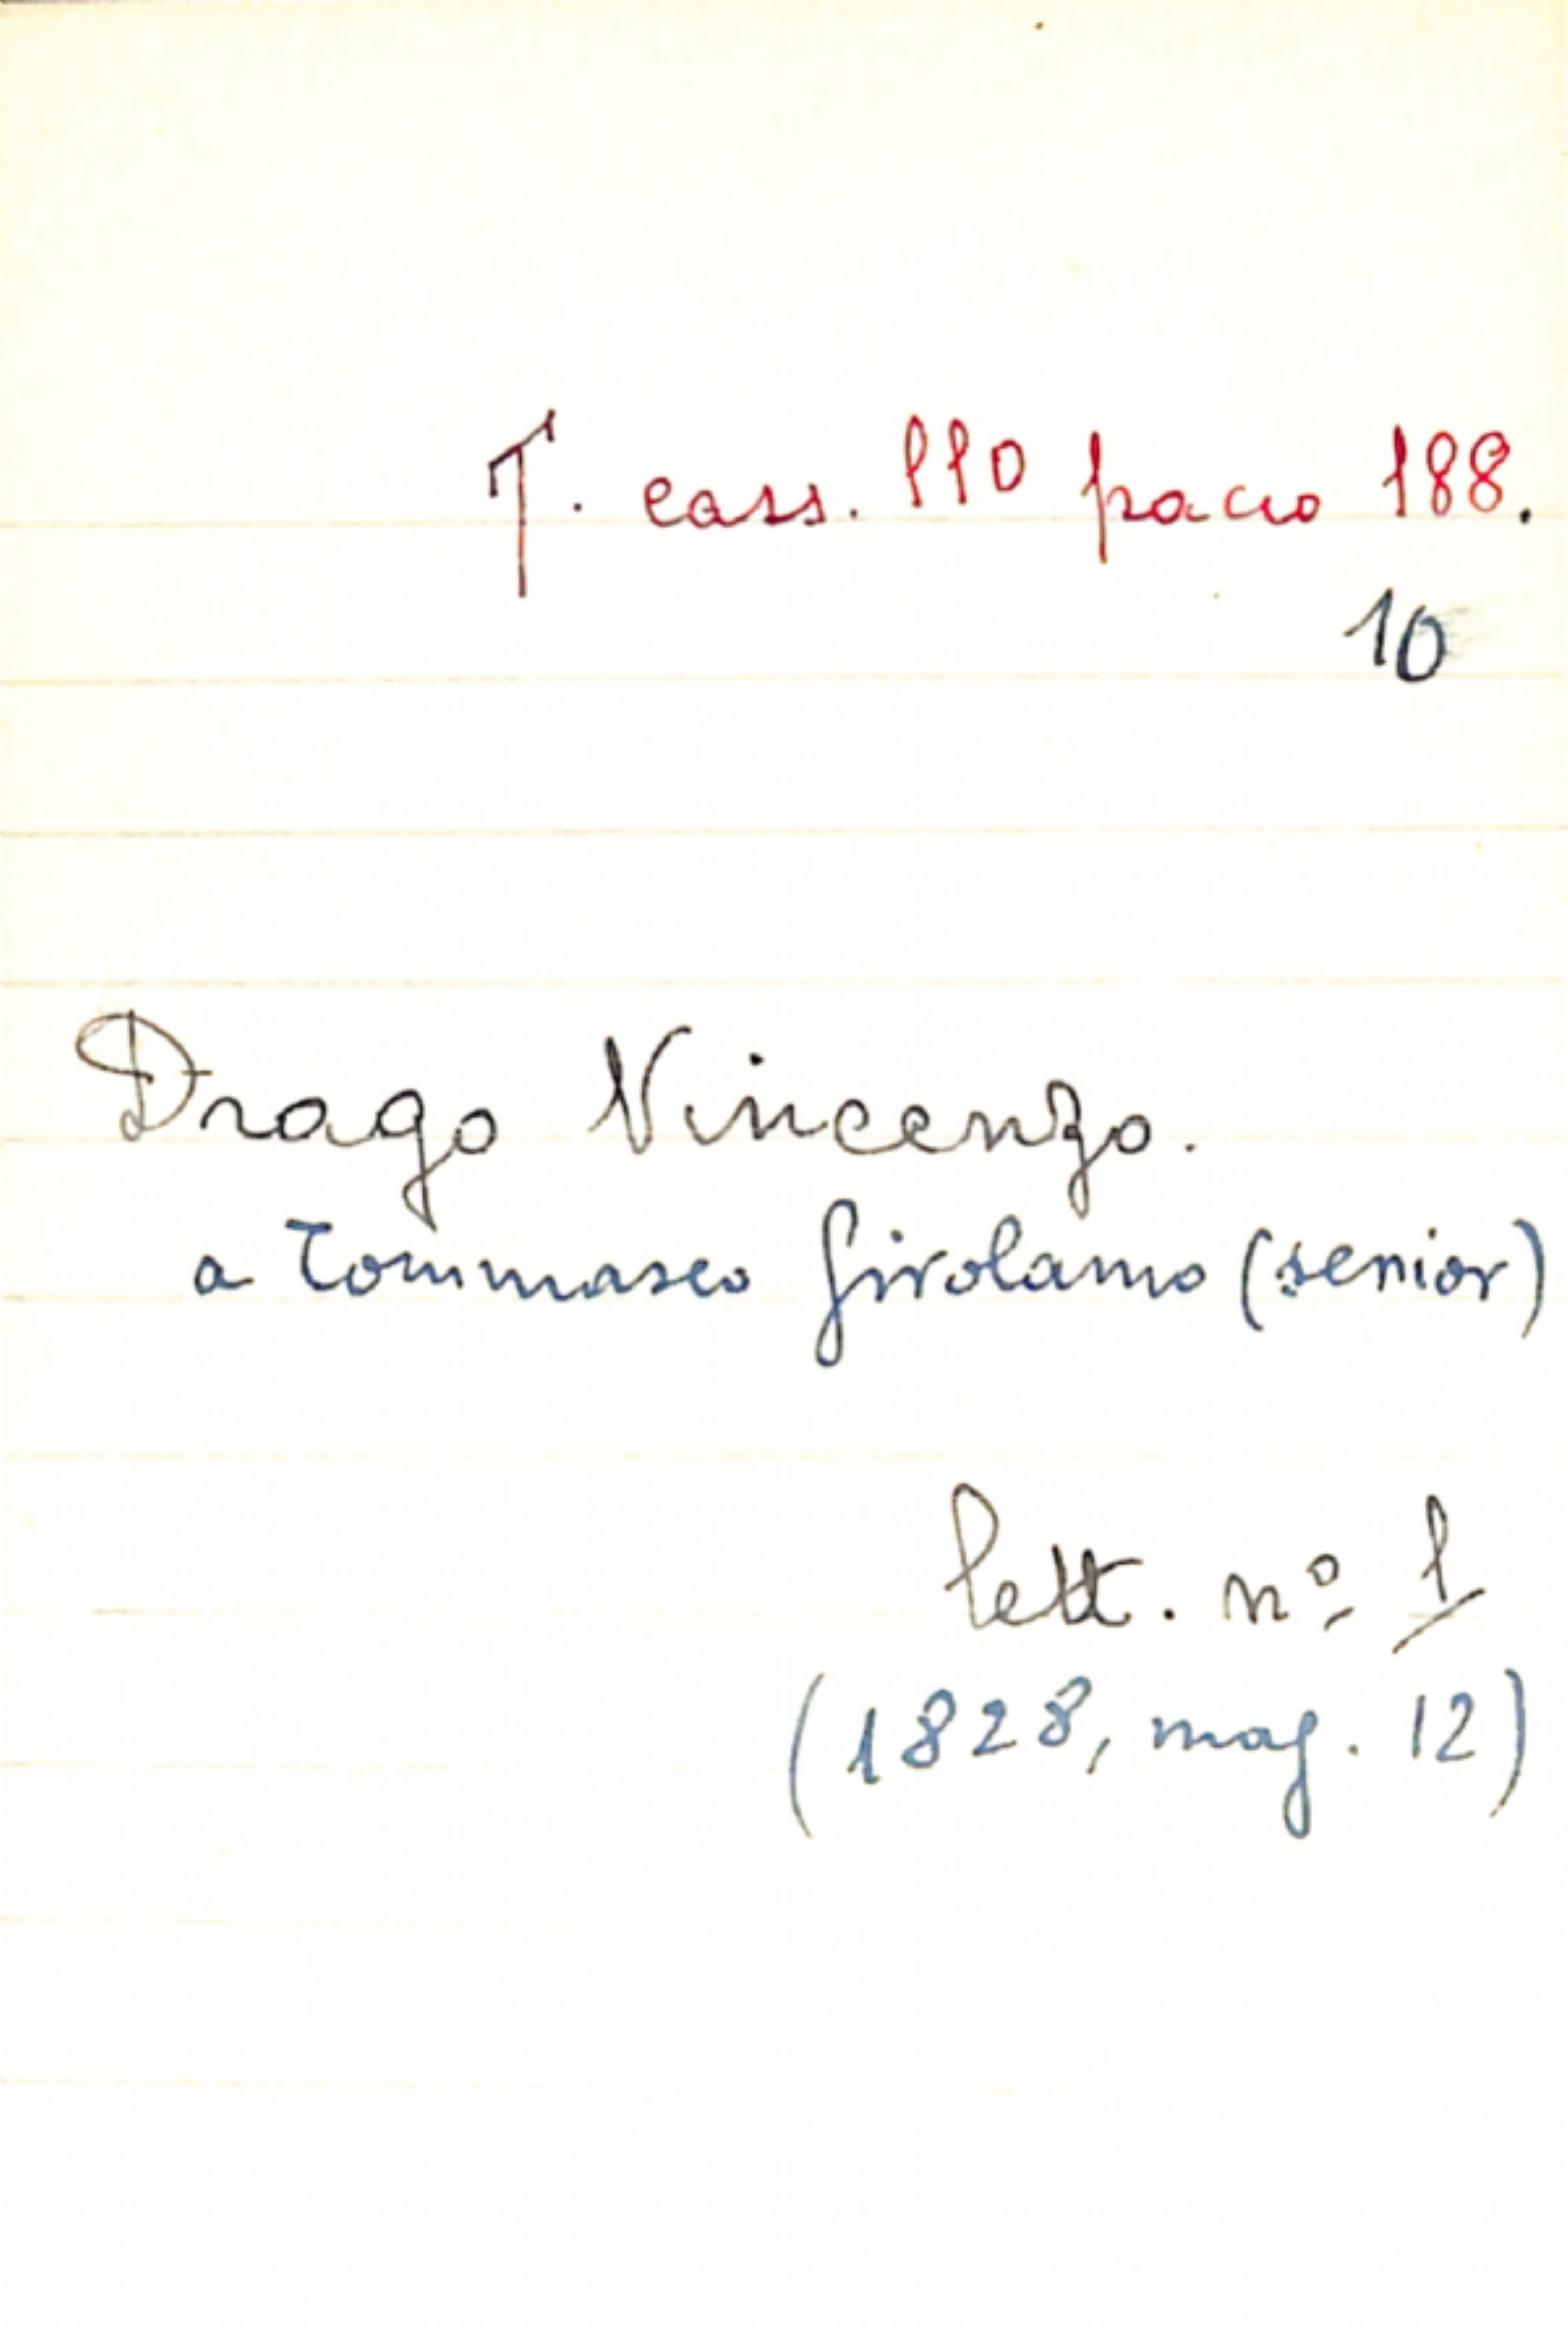 T. cass. 110 pacco 188.
10
Drago Vincenzo.
a Tommaseo Girolamo (senior)
lett. nº 1
(1828, mag. 12)